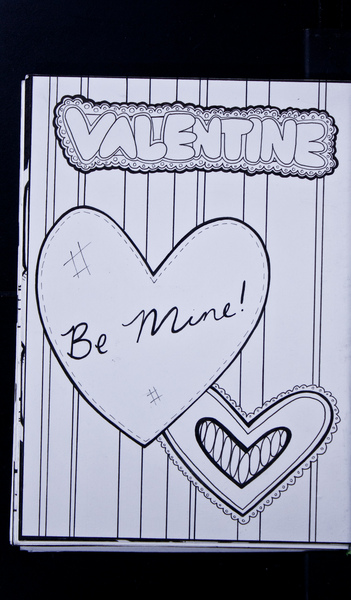 VALENTINE
Be Mine!